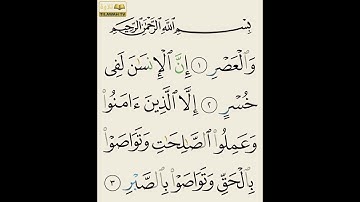 TILAWAH TV
بِسْمِ ٱللَّهِ ٱلرَّحْمَٰنِ ٱلرَّحِيمِ
وَٱلْعَصْرِ ١ إِنَّ ٱلْإِنسَٰنَ لَفِى
خُسْرٍ ٢ إِلَّا ٱلَّذِينَ ءَامَنُوا۟
وَعَمِلُوا۟ ٱلصَّٰلِحَٰتِ وَتَوَاصَوْا۟
بِٱلْحَقِّ وَتَوَاصَوْا۟ بِٱلصَّبْرِ ٣